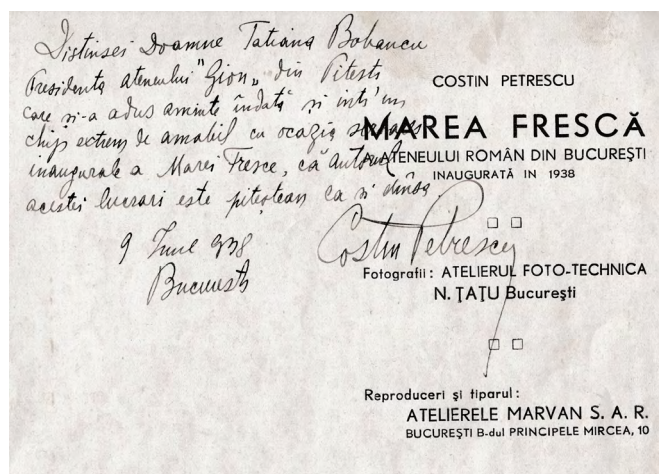 Distinsei Doamne Tatiana Bobancu
Presidenta ateneului "Gion" din Pitesti
care și-a adus aminte îndată și intr'un
chip extrem de amabil cu ocazia
inaugurale a Marei Fresce, că autorul
acestei lucrari este piteștean ca si dânsa
9 Iunie 938
București
Costin Petrescu
COSTIN PETRESCU
MAREA FRESCĂ
A ATENEULUI ROMÂN DIN BUCUREȘTI
INAUGURATĂ IN 1938
Fotografii: ATELIERUL FOTO-TECHNICA
N. ȚAȚU București
Reproduceri și tiparul:
ATELIERELE MARVAN S. A. R.
BUCUREȘTI B-dul PRINCIPELE MIRCEA, 10